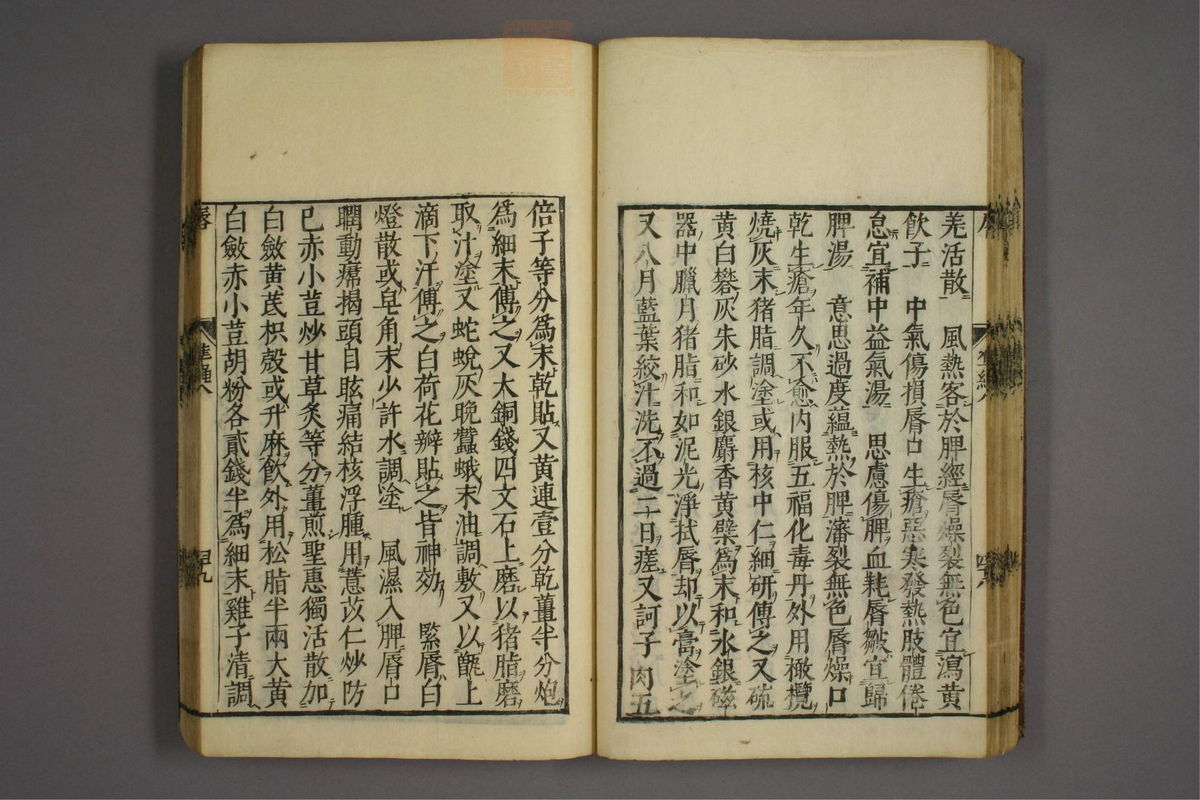 羌活散　風熱客於脾經唇燥裂無色宜瀉黃
飲子　中氣傷損唇口生瘡惡寒發熱肢體倦
怠宜補中益氣湯　思慮傷脾血耗唇皺宜歸
脾湯　意思過度蘊熱於脾瀋裂無色唇燥口
乾生瘡年久不愈内服五福化毒丹外用橄欖
燒灰末猪脂調塗或用核中仁細研傅之又硫
黃白礬灰朱砂水銀麝香黃檗為末和水銀磁
器中臘月猪脂和如泥光淨拭唇却以膏塗之
又八月藍葉絞汁洗不過二日瘥又訶子肉五
倍子等分為末乾貼又黃連壹分乾薑半分炮
為細末傅之又大銅錢四文石上磨以猪脂磨
取汁塗又蛇蛻灰晚蠶蛾末油調敷又以甑上
滴下汗傅之白荷花瓣貼之皆神効　緊唇白
燈散或皂角末少許水調塗　風濕入脾唇口
瞤動㿏揭頭目眩痛結核浮腫用薏苡仁炒防
已赤小荳炒甘草炙等分薑煎聖惠獨活散加
白斂黃芪枳殼或升麻飲外用松脂半兩大黃
白斂赤小荳胡粉各貳錢半為細末雞子清調
四九